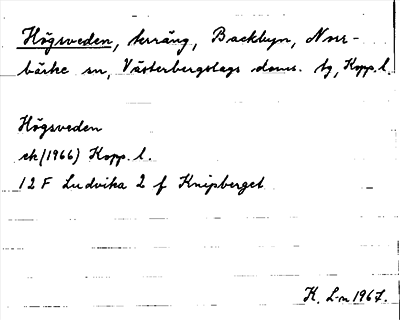 Högsveden, terräng, Backbyn, Norr-
bärke sn, Västerbergslags doms. tg, Kopp. l.
Högsveden
ek (1966) Kopp. l.
12 F Ludvika 2 f Knipberget
K. L-m 1967.